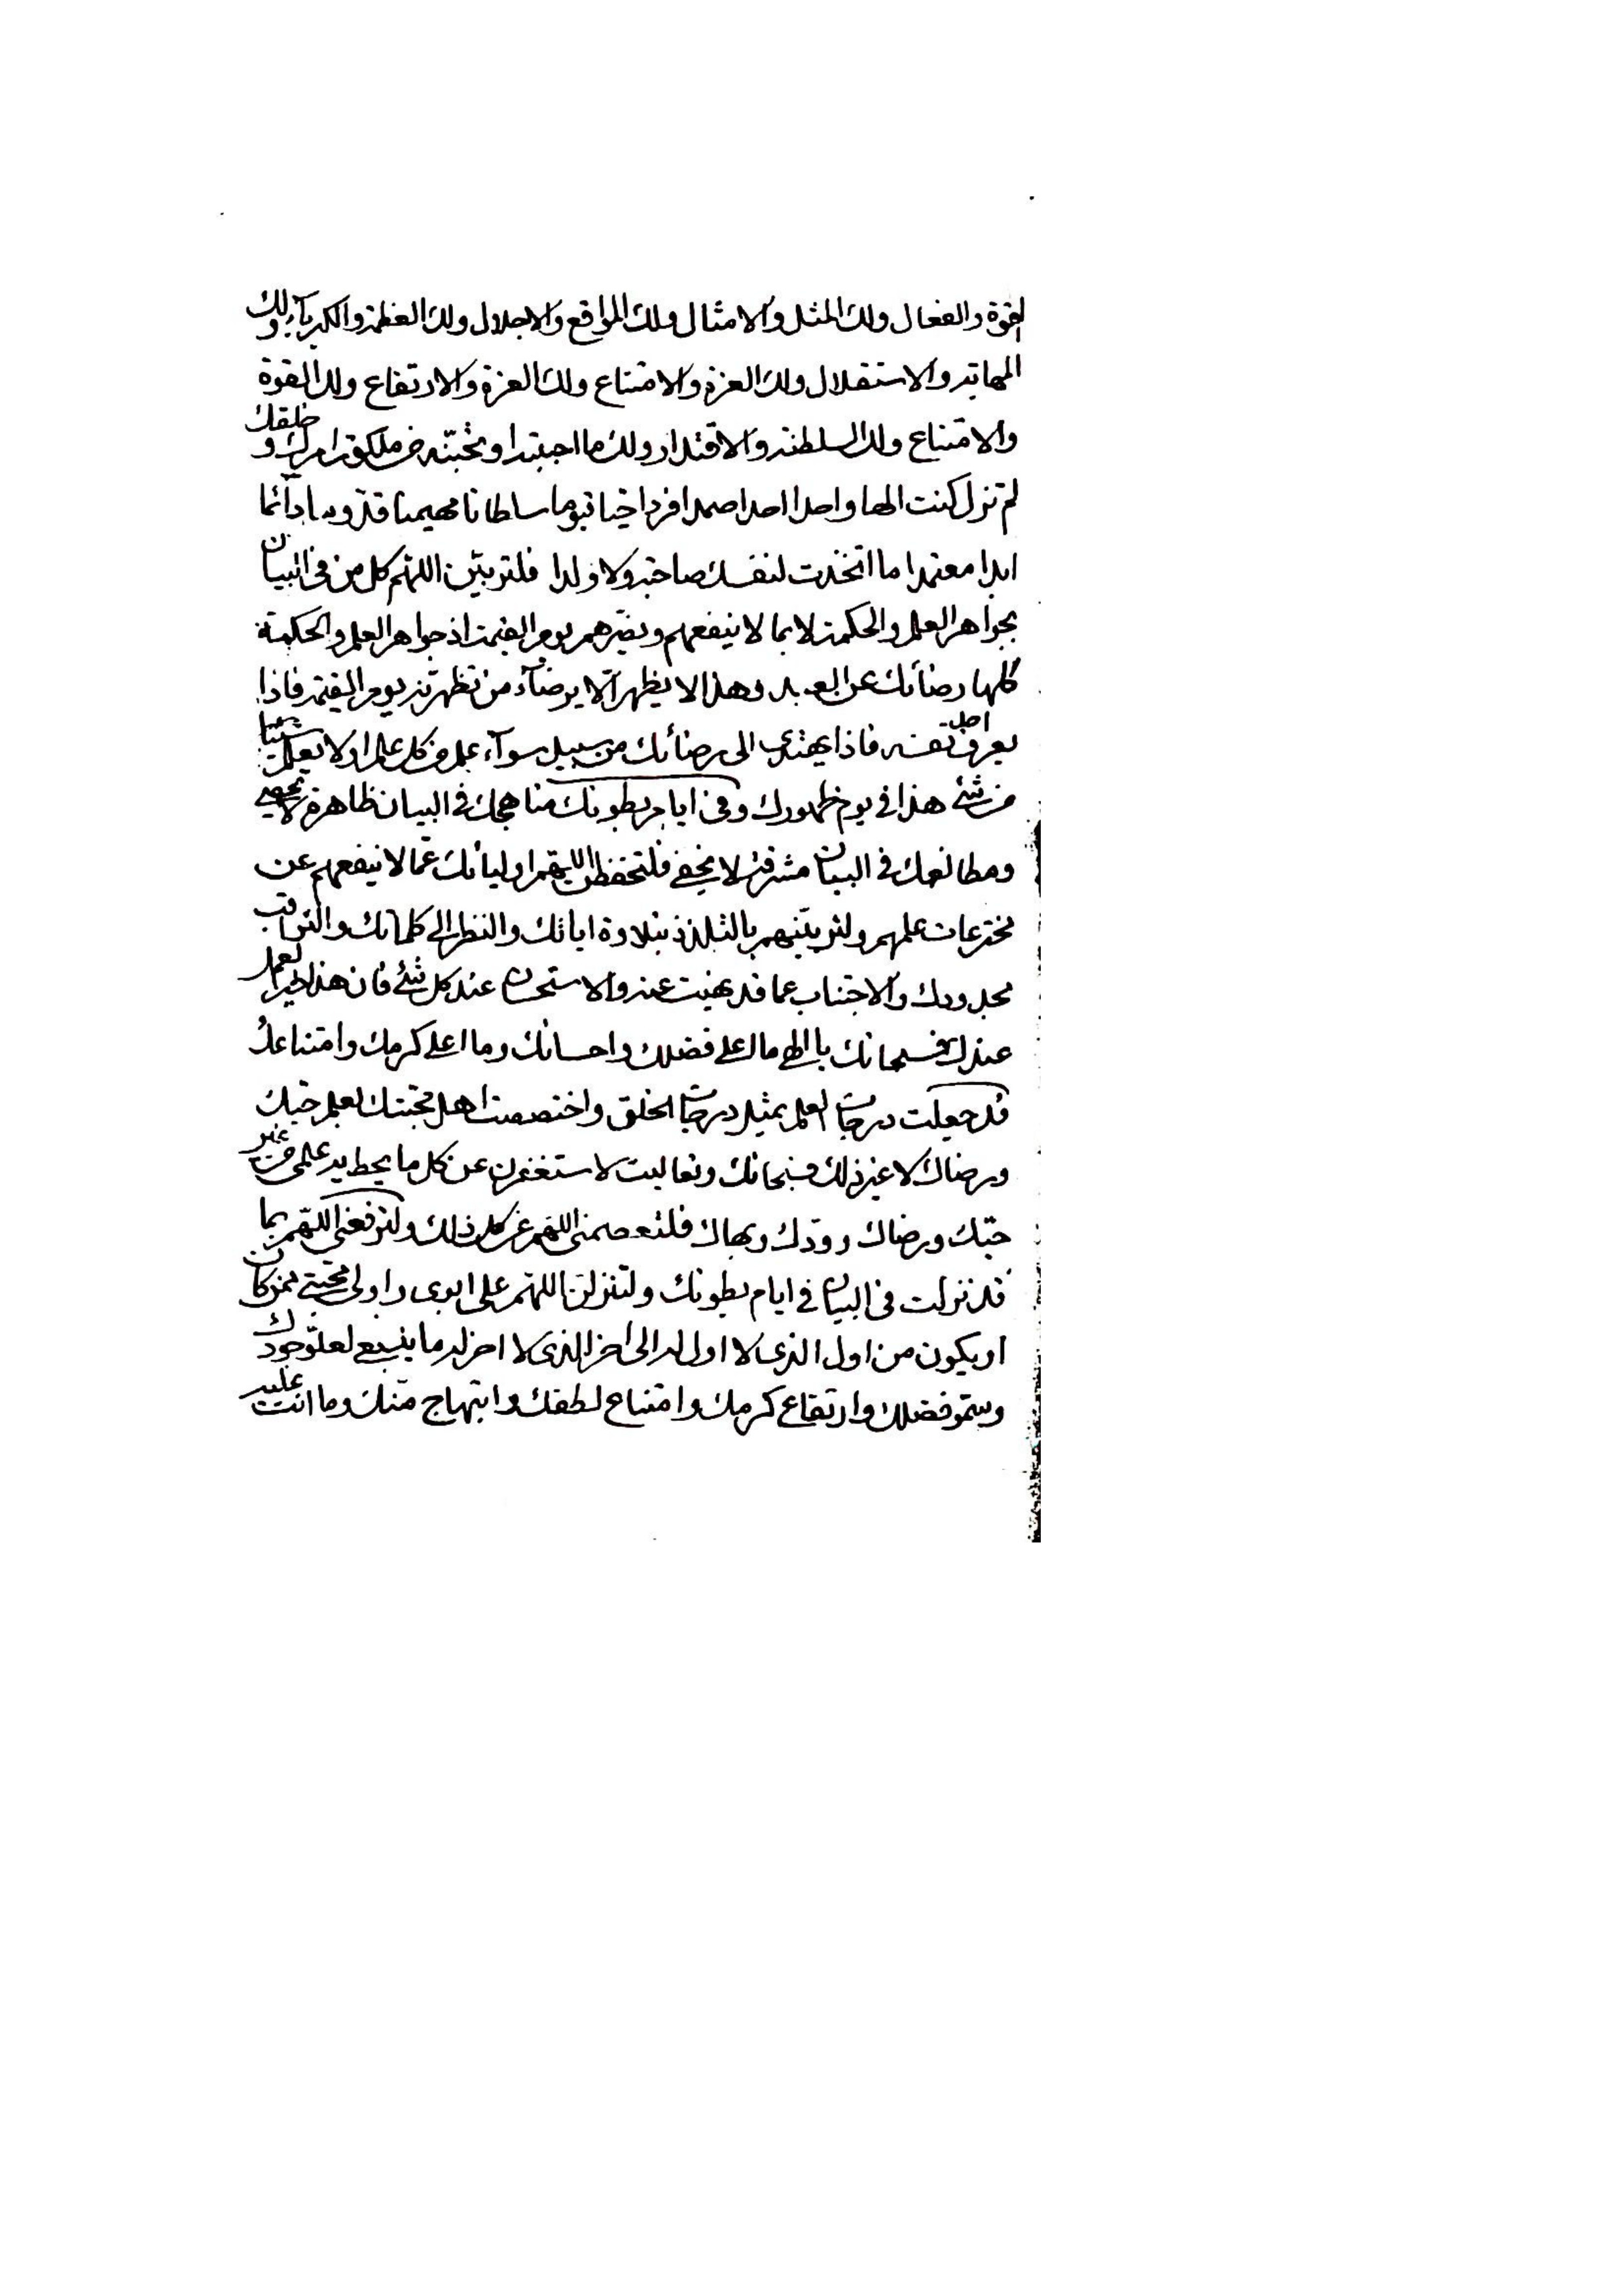 القوة والفعال ولك المثل والامثال ولك المواقع والاجلال ولك العظمة والكبرياء ولك
المهابة والاستقلال ولك العزة والامتناع ولك العزة والارتفاع ولك القوة
والامتناع ولك السلطنة والاقتدار ولك ما احببته او تحبنه من ملكوت امرك و خلقك
لم تزل كنت الها واحدا احدا صمدا فردا حيا قيوما سلطانا مهيمنا قدوسا دآئما
ابدا معتمدا ما اتخذت لنفسك صاحبة ولا ولدا فلتربين اللهم كل من فى البيان
بجواهر العلم والحكمة لا بما لا ينفعهم ويضرهم يوم القيمة اذ جواهر العلم والحكمة
كلها رضائك عن العبد وهذا لا يظهر الا برضآء من تظهرنه يوم القيمة فاذا
يعرف احد نفسه فاذا يهتدى الى رضائك من سبيل سوآء علم من كل علم اولا يعلم شيئا
من شئ هذا في يوم ظهورك وفى ايام بطونك مناهجك في البيان ظاهرة لا تخفى
ومطالعك في البيان مشرقة لا يخفى فلتحفظن اللهم اوليائك عما لا ينفعهم عن
مخترعات علمهم ولتربينهم بالتلذذ بتلاوة اياتك والنظر الى كلماتك والتراقب
بحدودك والاجتناب عما قد نهيت عنه والاستحسان عند كل شئ فان هذا خير العمل
عندك فسبحانك يا الهى ما اعلى فضلك واحسانك وما اعلى كرمك وامتناعك
قد جعلت درجات العلم بمثل درجات الخلق واختصصت اهل محبتك لعلم حبك
ورضاك لا غير ذلك فسبحانك وتعاليت لاستغفرن عن كل ما يحط به علمى من غير
حبك ورضاك وودك وبهاك فلتعصمنى اللهم عن كل ذلك ولترفعنى اللهم بما
قد نزلت فى البيان في ايام بطونك ولتنزلن اللهم على ابوى واولى محبتى ممن كان
او يكون من اول الذى لا اول له الى اخر الذى لا اخر له ما ينبغى لعلو جودك
وسمو فضلك وارتفاع كرمك وامتناع لطفك وابتهاج منك وما انت عليه